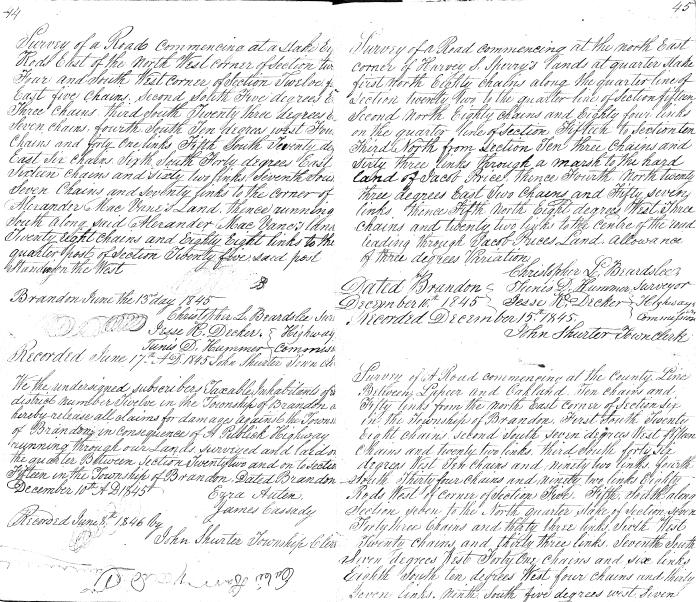 44
Survey of a Road commencing at a Stake Ei
Rods East of the North West corner of Section tw
Four and South West corner of Section Twelve f
East five Chains. Second South Five degrees E
Three Chains third South Twenty three degrees E
Seven chains fourth South Ten degrees West Four
Chains and forty One links Fifth South Twenty de
East Six Chains Sixth South Forty degrees East
Sixteen Chains and Sixty two links Seventh Sou
Seven Chains and Seventy links to the corner of
Alexander Mac Vane's Land, thence running
South along said Alexander Mac Vane's lan
Twenty Eight Chains and Eighty Eight links to the
quarter post of Section Twenty five said post
Standing on the West
Brandon June the 13 day 1845
Christopher L. Beardslee Sur
Jesse K. Decker } Highway
Tunis D. Hummer } Commiss
Recorded June 17th A D. 1845 John Shurter Town cl
We the undersigned subscribers Taxable Inhabitants of
district number Twelve in the Township of Brandon
hereby release all claims for damage against the Town
of Brandon in consequence of A Publick Highway
running through our Lands surveyed and laid on
the quarter Between Section Twenty two and on to Section
Fifteen in the Township of Brandon. Dated Brandon
December 10th A D 1845
Ezra Auten
James Cassady
Recorded June 8th 1846 by
John Shurter Township Cler
45
Survey of a Road commencing at the north East
corner of Harvey S. Sperry's Lands at quarter Stake
first North Eighty Chains along the quarter line of
Section twenty two to the quarter line of section fifteen
Second North Eighty Chains and Eighty four links
on the quarter line of Section Fifteen to Section ten
Third North from Section Ten three Chains and
Sixty three links through a marsh to the hard
land of Jacob Price, thence Fourth North twenty
three degrees East Two Chains and Fifty seven
links. Thence Fifth North Eight degrees West Three
chains and twenty two links to the centre of the road
leading through Jacob Prices Land. allowance
of three degrees Variation
Christopher L Beardslee
Dated Brandon } Tunis D. Hummer Surveyor
December 10th 1845 } Jesse K. Decker } Highway
Commissioners
Recorded December 15th 1845.
John Shurter Town clerk
Survey of A Road commencing at the County Line
Between Lapeer and Oakland. Ten chains and
Fifty links from the North East Corner of Section Six
in the Township of Brandon. First South Twenty
Eight chains second South seven degrees West fifteen
Chains and twenty links. Third South forty six
degrees West Ten Chains and ninety two links fourth
South Thirty four chains and ninety two links Eighty
Rods West of corner of Section Five. Fifth, South along
Section seven to the North quarter Stake of Section seven
Forty three Chains and thirty three links. Sixth West
Twenty chains, and thirty three links. Seventh South
Seven degrees West Forty One chains and six links
Eighth South ten degrees West four chains and thirty
Seven links. Ninth South five degrees west Seven